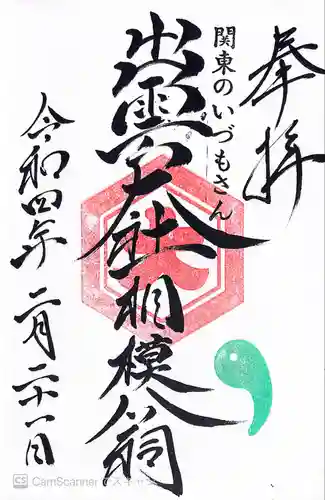 奉拝
関東のいづもさん
出雲大社相模分祠
令和四年二月二十一日
CamScanner でスキャン